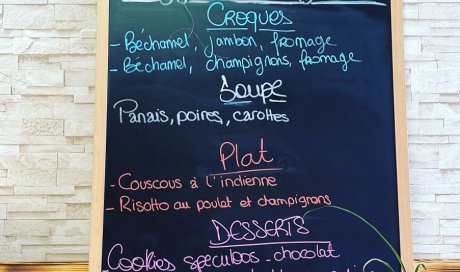 Croques
- Béchamel, jambon, fromage
- Béchamel, champignons, fromage
Soupe
Panais, poires, carottes
Plat
- Couscous à l'indienne
- Risotto au poulat et champignons
DESSERTS
Cookies speculoos - chocolat